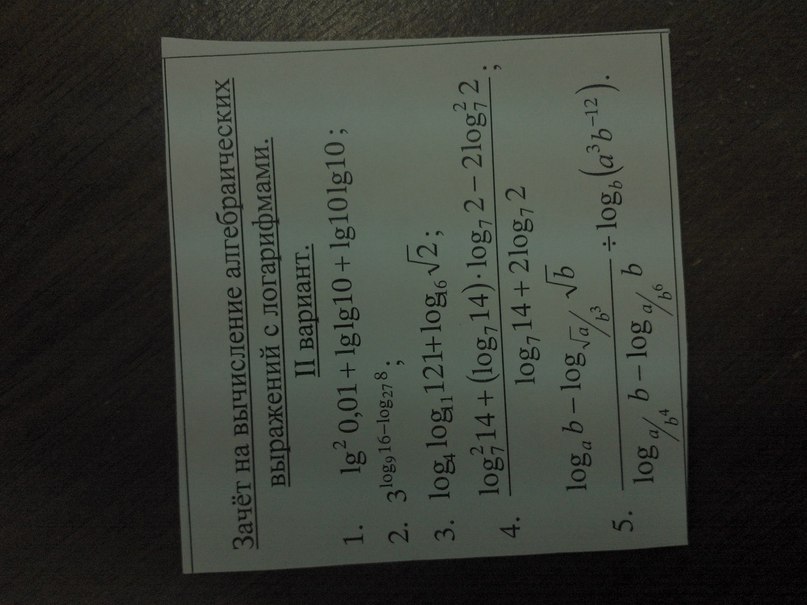 Зачёт на вычисление алгебраических
выражений с логарифмами.
II вариант.
1. lg² 0,01 + lg lg10 + lg10 lg10 ;
2. 3^{log₉ 16 − log₂₇ 8} ;
3. log₄ log₁₁ 121 + log₆ √2 ;
4. \frac{log₇² 14 + (log₇ 14) · log₇ 2 − 2 log₇² 2}{log₇ 14 + 2 log₇ 2} ;
5. \frac{log_a b − log_{√a/b³} √b}{log_{a/b⁴} b − log_{a/b⁶} b} ÷ log_b (a³b⁻¹²).